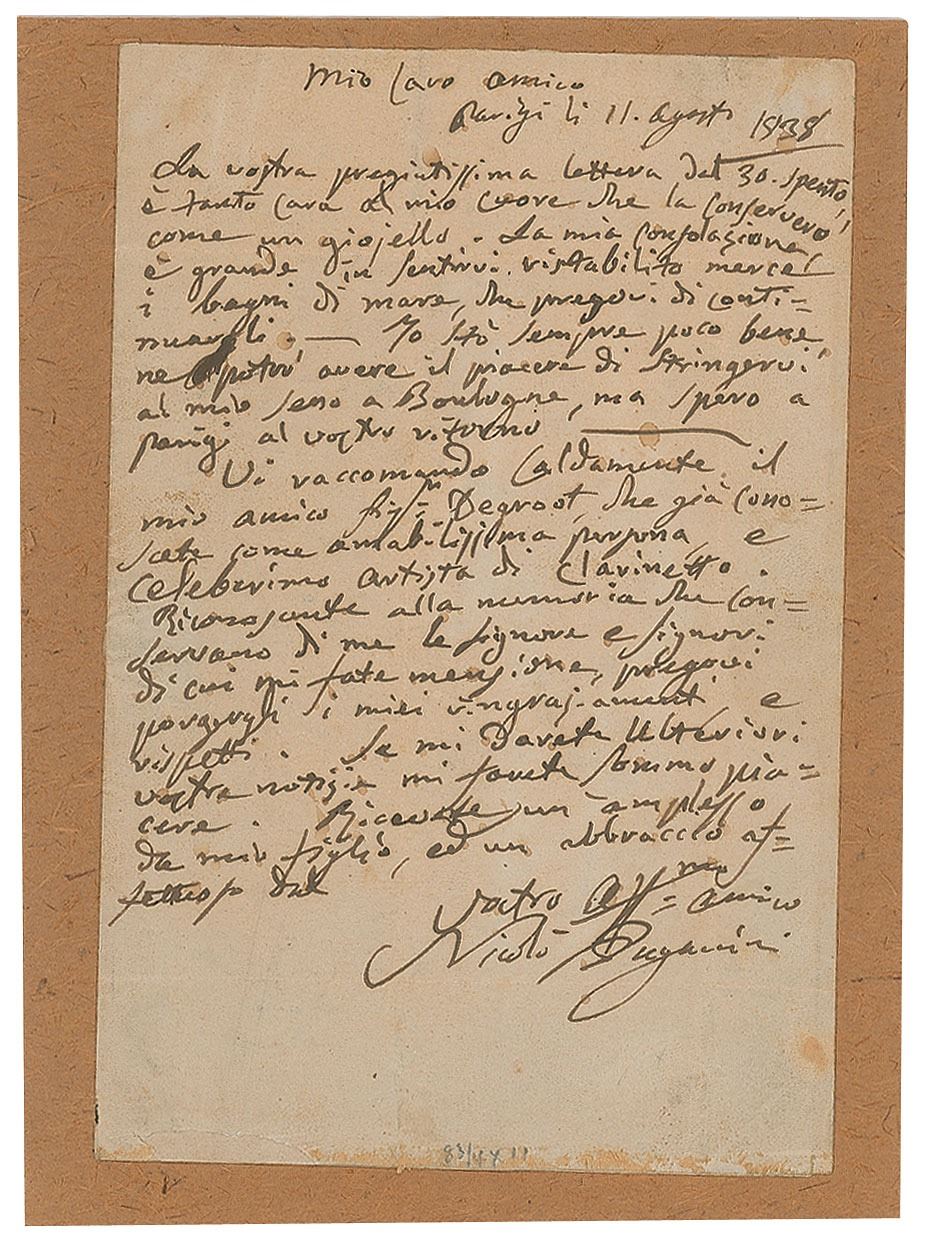 Mio Caro amico
Parigi li 11. Agosto 1838
La vostra pregiatissima lettera del 30. spento,
è tanto cara al mio cuore che la conserverò
come un giojello. La mia consolazione
è grande in sentirvi ristabilito mercè
i bagni di mare, che pregovi di conti=
nuarli. — Io stò sempre poco bene
ne potrò avere il piacere di stringervi
al mio seno a Boulogne, ma spero a
parigi al vostro ritorno —
Vi raccomando Caldamente il
mio amico Degroot, che già cono=
scete come amabilissima persona, e
celeberimo artista di Clarinetto.
Riconoscente alla memoria che con=
servano di me le signore e signori
di cui mi fate menzione, pregovi
porgergli i miei ringraziamenti e
rispetti. Se mi Darete Ulteriori
vostre notizie mi farete sommo pia=
cere. Ricevete un amplesso
da mio figlio, ed un abbraccio af=
fettuoso dal
Vostro Aff=mo amico
Nicolò Paganini